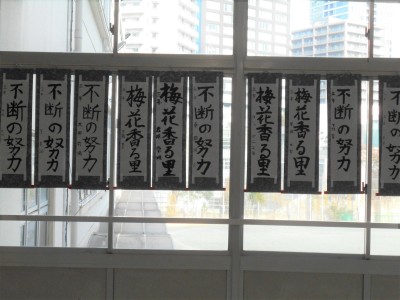 不断の努力
不断の努力
不断の努力
梅花香る里
梅花香る里
不断の努力
梅花香る里
梅花香る里
不断の努力
不断の努力